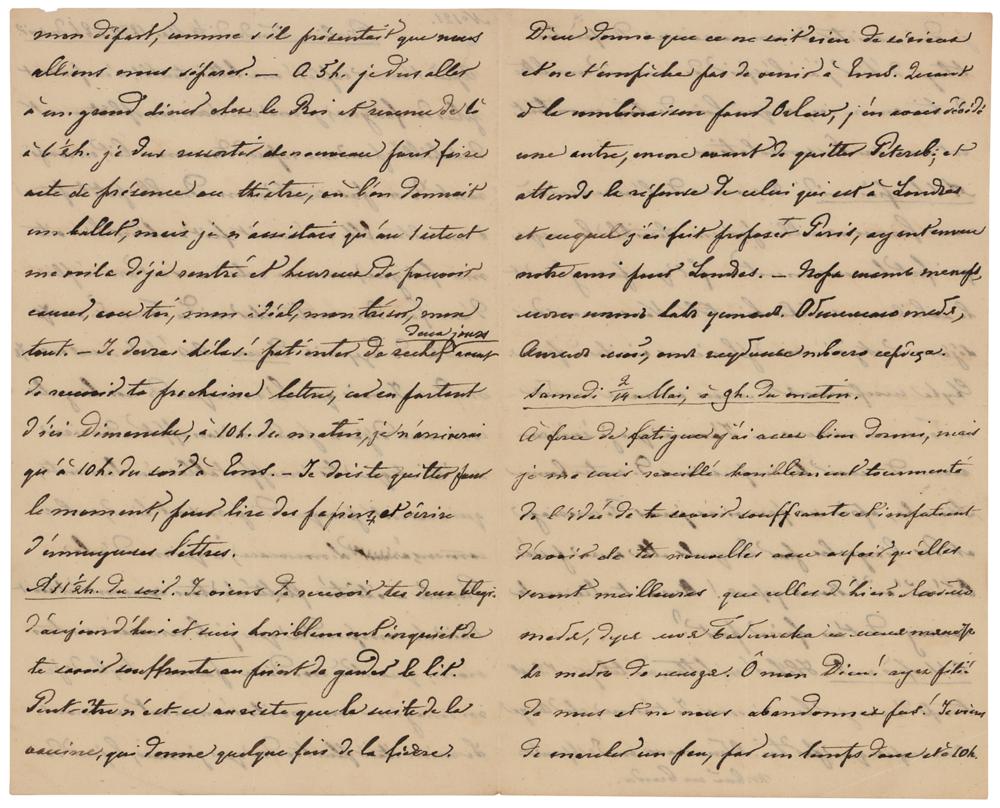 mon départ, comme s'il présentait que nous
allions nous séparer. — A 5h. je dus aller
à un grand dîner chez le Roi et revenu de là
à 6½h. je dus ressortir de nouveau pour faire
acte de présence au théâtre, où l'on donnait
un ballet, mais je n'assistais qu'au 1 acte et
me voilà déjà rentré et heureux de pouvoir
causer, avec toi, mon idéal, mon trésor, mon
tout. — Je devrai hélas! patienter de rechef deux jours avant
de recevoir ta prochaine lettre, car en partant
d'ici Dimanche, à 10h. du matin, je n'arriverai
qu'à 10h. du soir à Ems. — Je dois te quitter pour
le moment, pour lire des papiers, et écrire
d'ennuyeuses lettres.
A 11½h. du soir. Je viens de recevoir tes deux télégr.
d'aujourd'hui et suis horriblement inquiet de
te savoir souffrante au point de garder le lit.
Peut-être n'est-ce au reste que la suite de la
vaccine, qui donne quelque fois de la fièvre.
Dieu donne que ce ne soit rien de sérieux
et ne t'empêche pas de venir à Ems. Quant
à la combinaison pour Orlow, j'en avais décidé
une autre, encore avant de quitter Pétersb; et
attends la réponse de celui qui est à Londres
et auquel j'ai fait proposer Paris, ayant en vue
notre ami pour Londres. —
Обнимаю тебя,
Ангелъ мой, отъ
Samedi 2/14 Mai, à 9h. du matin.
À force de fatigue j'ai assez bien dormi, mais
je me suis réveillé horriblement tourmenté
de l'idée de te savoir souffrante et impatient
d'avoir de tes nouvelles avec espoir qu'elles
seront meilleures que celles d'hier.
тебя, душа моя
Ô mon Dieu! ayez pitié
de nous et ne nous abandonnez pas! Je viens
de marcher un peu, par un temps doux et à 10h.